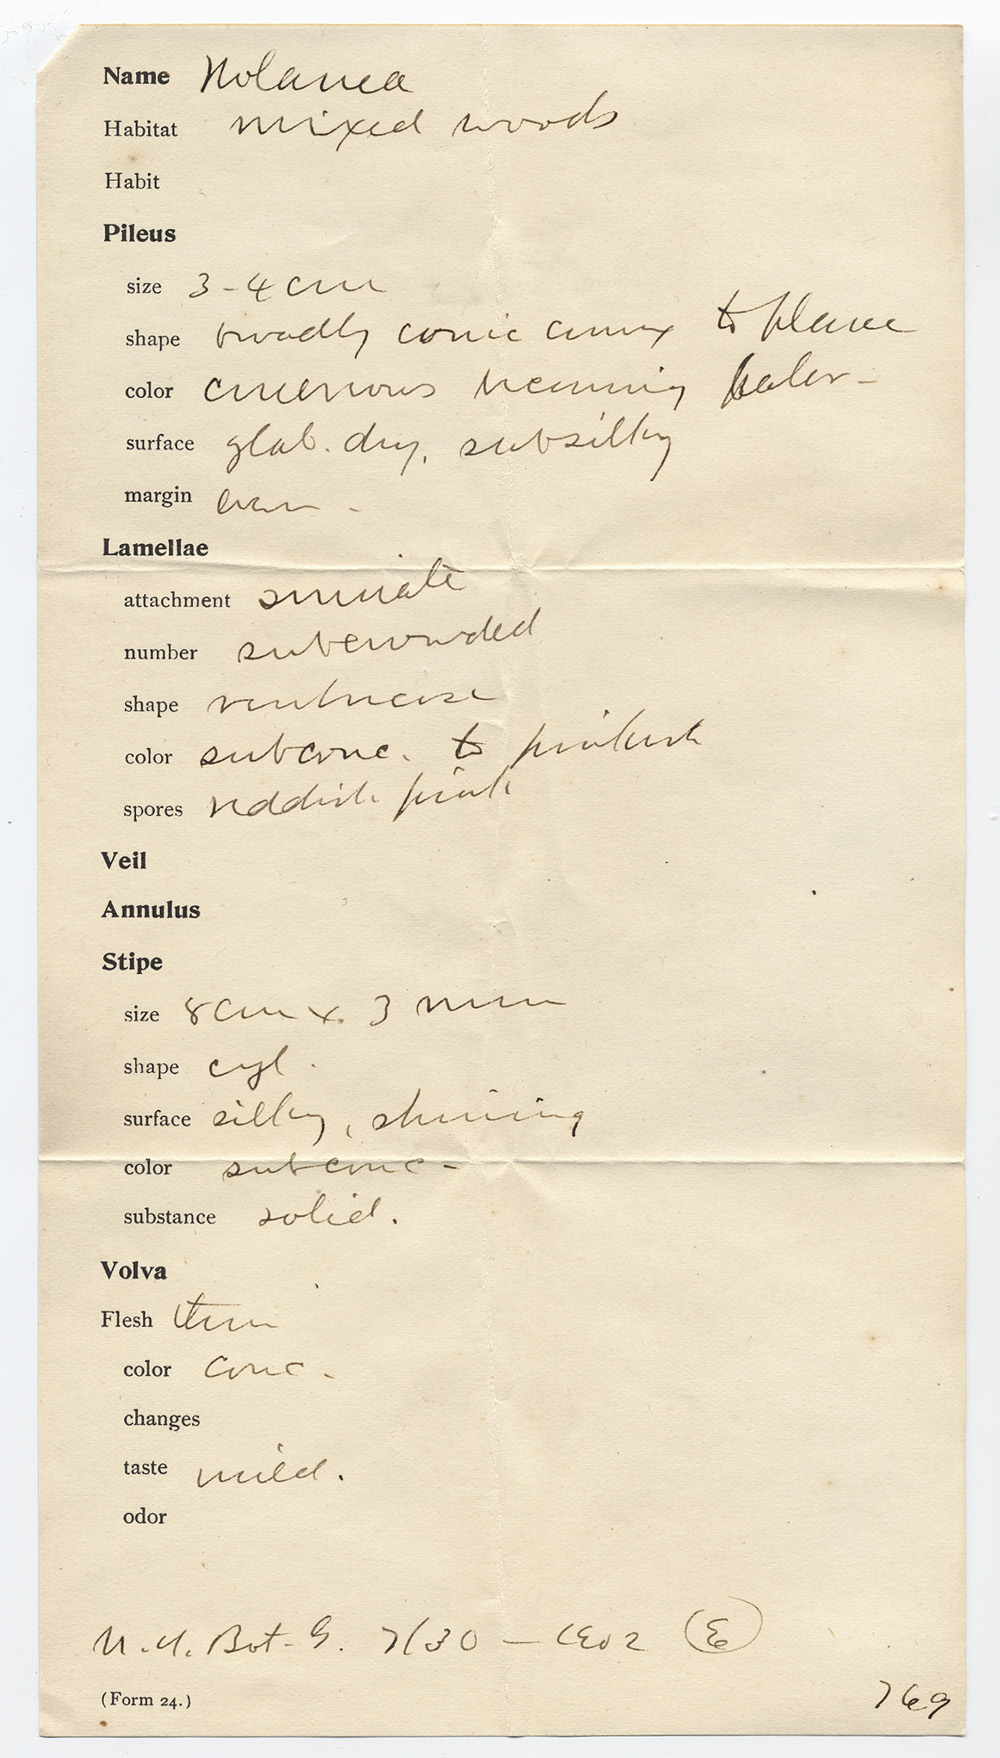 Name Nolanea
Habitat mixed woods
Habit
Pileus
size 3-4 cm
shape broadly conic convex to plane
color cinereous becoming paler-
surface glab. dry, subsilky
margin even -
Lamellae
attachment sinuate
number subcrowded
shape ventricose
color subconc. to pinkish
spores reddish pink
Veil
Annulus
Stipe
size 8 cm x 3 mm
shape cyl.
surface silky, shining
color subconc-
substance solid.
Volva
Flesh thin
color conc.
changes
taste mild.
odor
N.Y. Bot. G. 7/30 — 1902 E
(Form 24.)
769